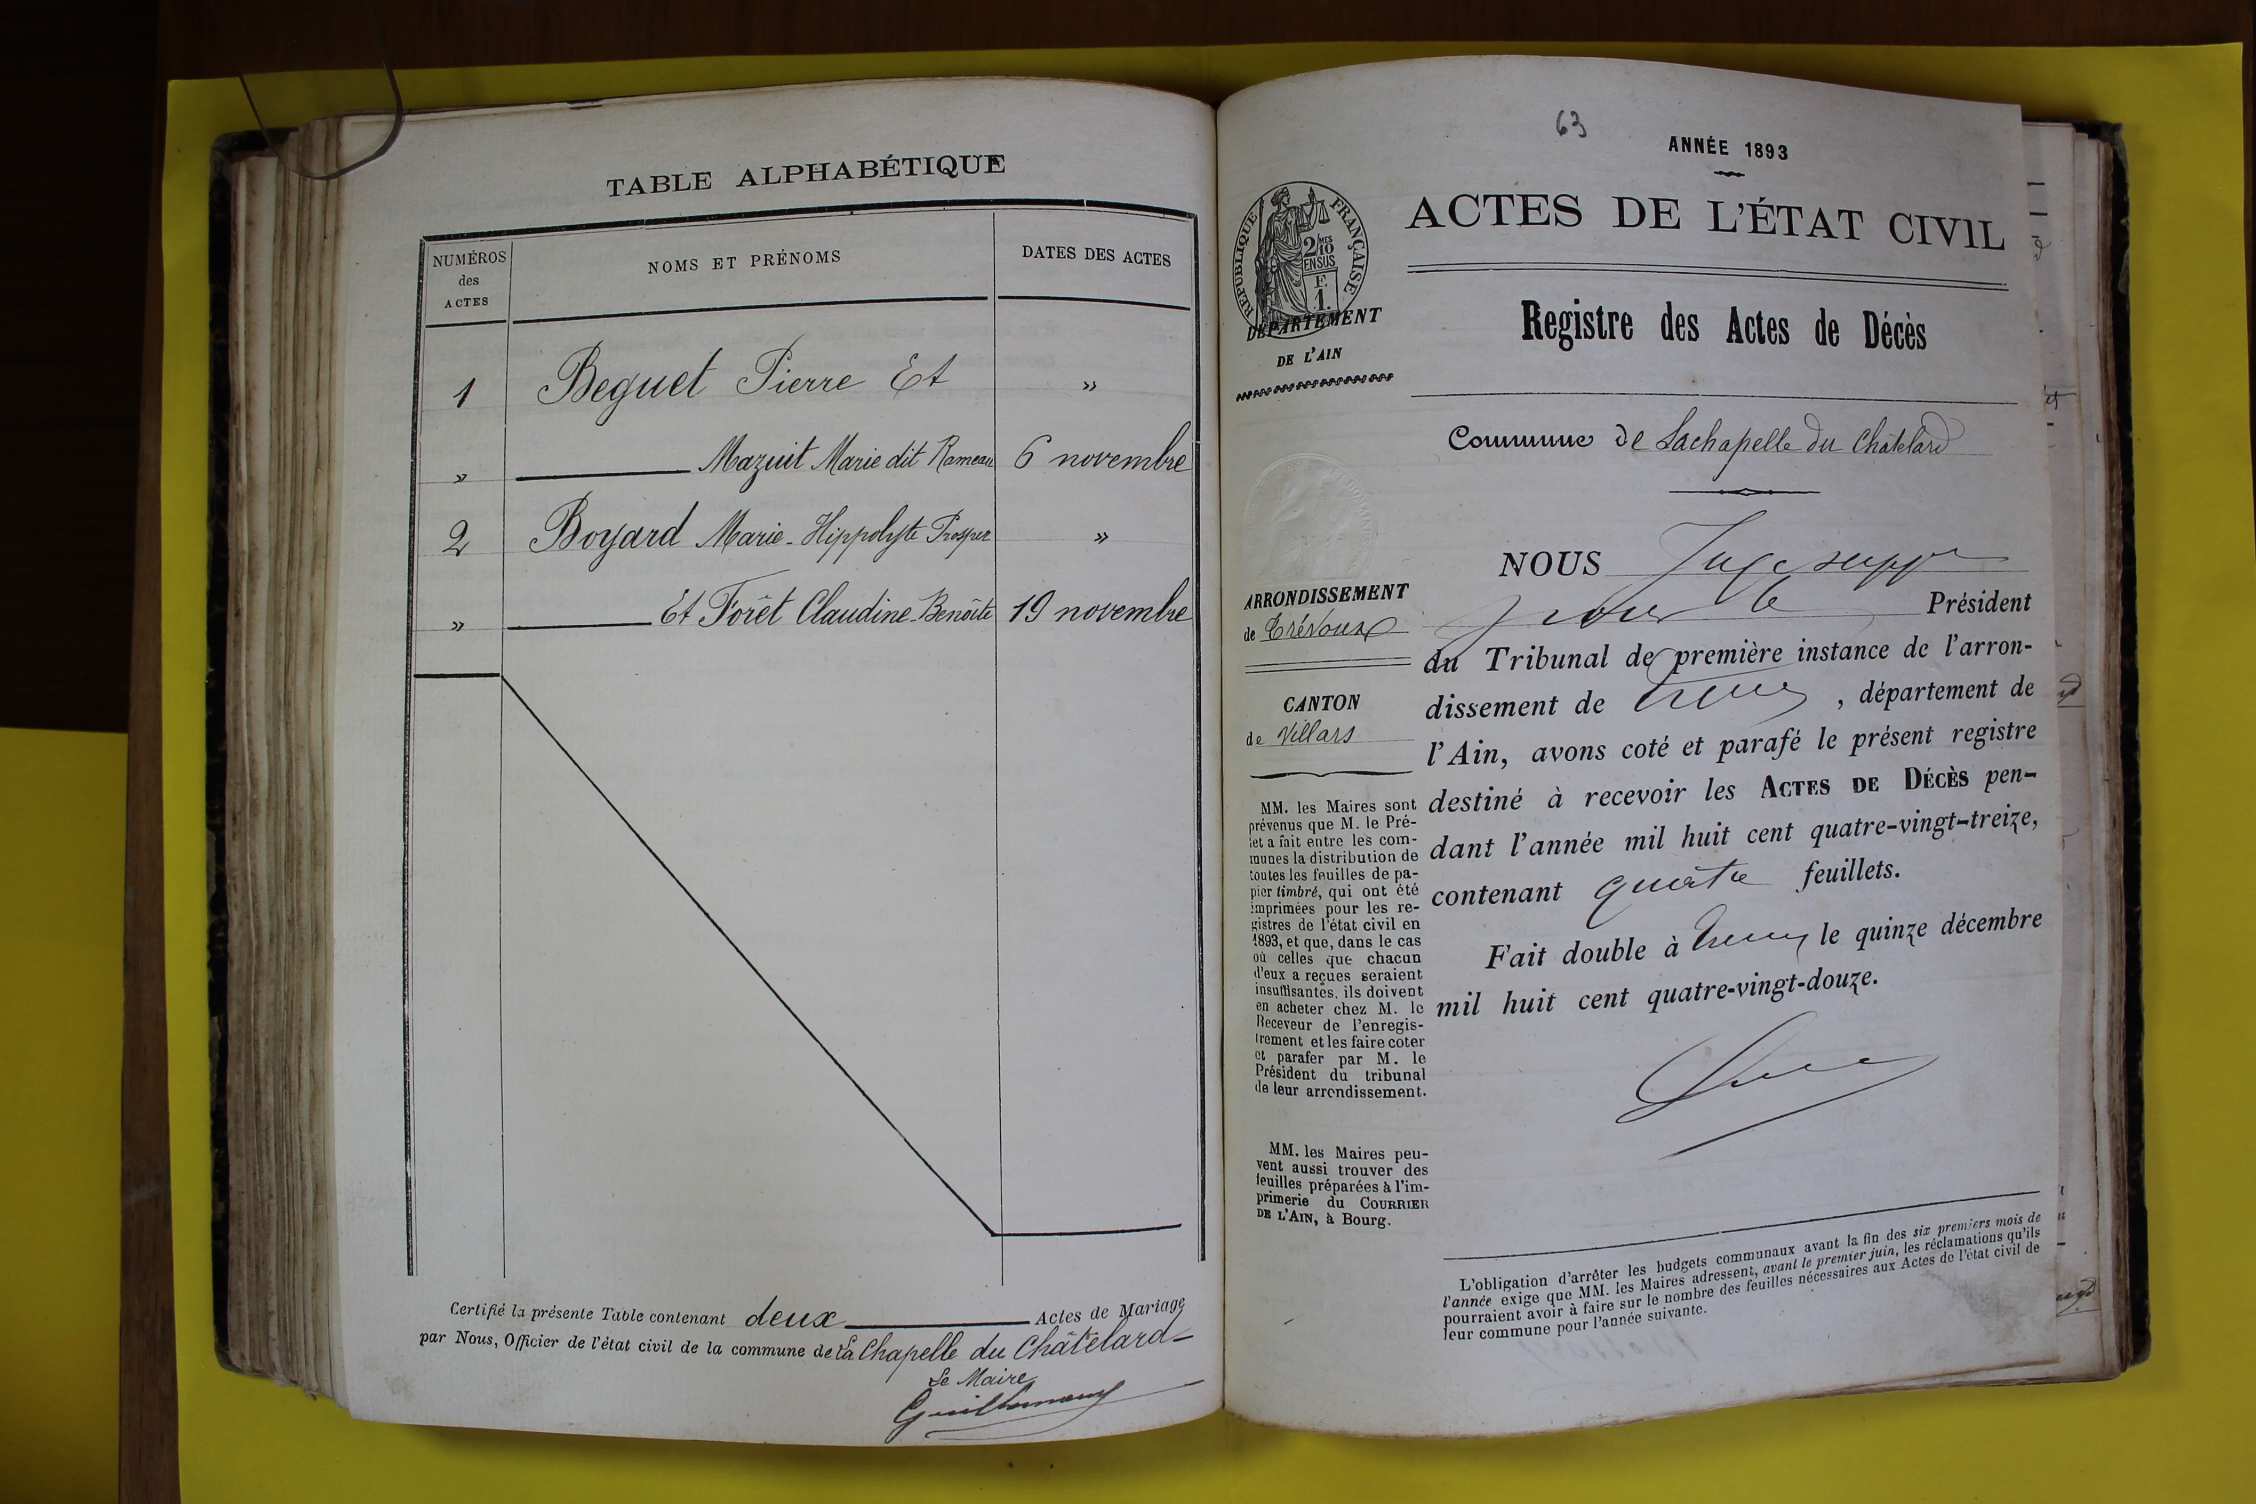 TABLE ALPHABÉTIQUE
NUMÉROS des ACTES
NOMS ET PRÉNOMS
DATES DES ACTES
1 Beguet Pierre Et »
» Mazuit Marie dit Rameau 6 novembre
2 Boyard Marie-Hippolyte Prosper »
» Et Forêt Claudine-Benôite 19 novembre
Certifié la présente Table contenant deux Actes de Mariage
par Nous, Officier de l'état civil de la commune de La Chapelle du Châtelard
Le Maire
63
ANNÉE 1893
ACTES DE L'ÉTAT CIVIL
RÉPUBLIQUE FRANÇAISE
2/10 MES
EN SUS
F.
1.
DÉPARTEMENT
DE L'AIN
Registre des Actes de Décès
Commune de Lachapelle du Chatelard
ARRONDISSEMENT
de Trévoux
CANTON
de Villars
MM. les Maires sont
prévenus que M. le Pré-
fet a fait entre les com-
munes la distribution de
toutes les feuilles de pa-
pier timbré, qui ont été
imprimées pour les re-
gistres de l'état civil en
1893, et que, dans le cas
où celles que chacun
d'eux a reçues seraient
insuffisantes, ils doivent
en acheter chez M. le
Receveur de l'enregis-
trement et les faire coter
et parafer par M. le
Président du tribunal
de leur arrondissement.
MM. les Maires peu-
vent aussi trouver des
feuilles préparées à l'im-
primerie du COURRIER
DE L'AIN, à Bourg.
NOUS Juge supp
pour le Président
du Tribunal de première instance de l'arron-
dissement de , département de
l'Ain, avons coté et parafé le présent registre
destiné à recevoir les ACTES DE DÉCÈS pen-
dant l'année mil huit cent quatre-vingt-treize,
contenant quatre feuillets.
Fait double à le quinze décembre
mil huit cent quatre-vingt-douze.
L'obligation d'arrêter les budgets communaux avant la fin des six premiers mois de
l'année exige que MM. les Maires adressent, avant le premier juin, les réclamations qu'ils
pourraient avoir à faire sur le nombre des feuilles nécessaires aux Actes de l'état civil de
leur commune pour l'année suivante.